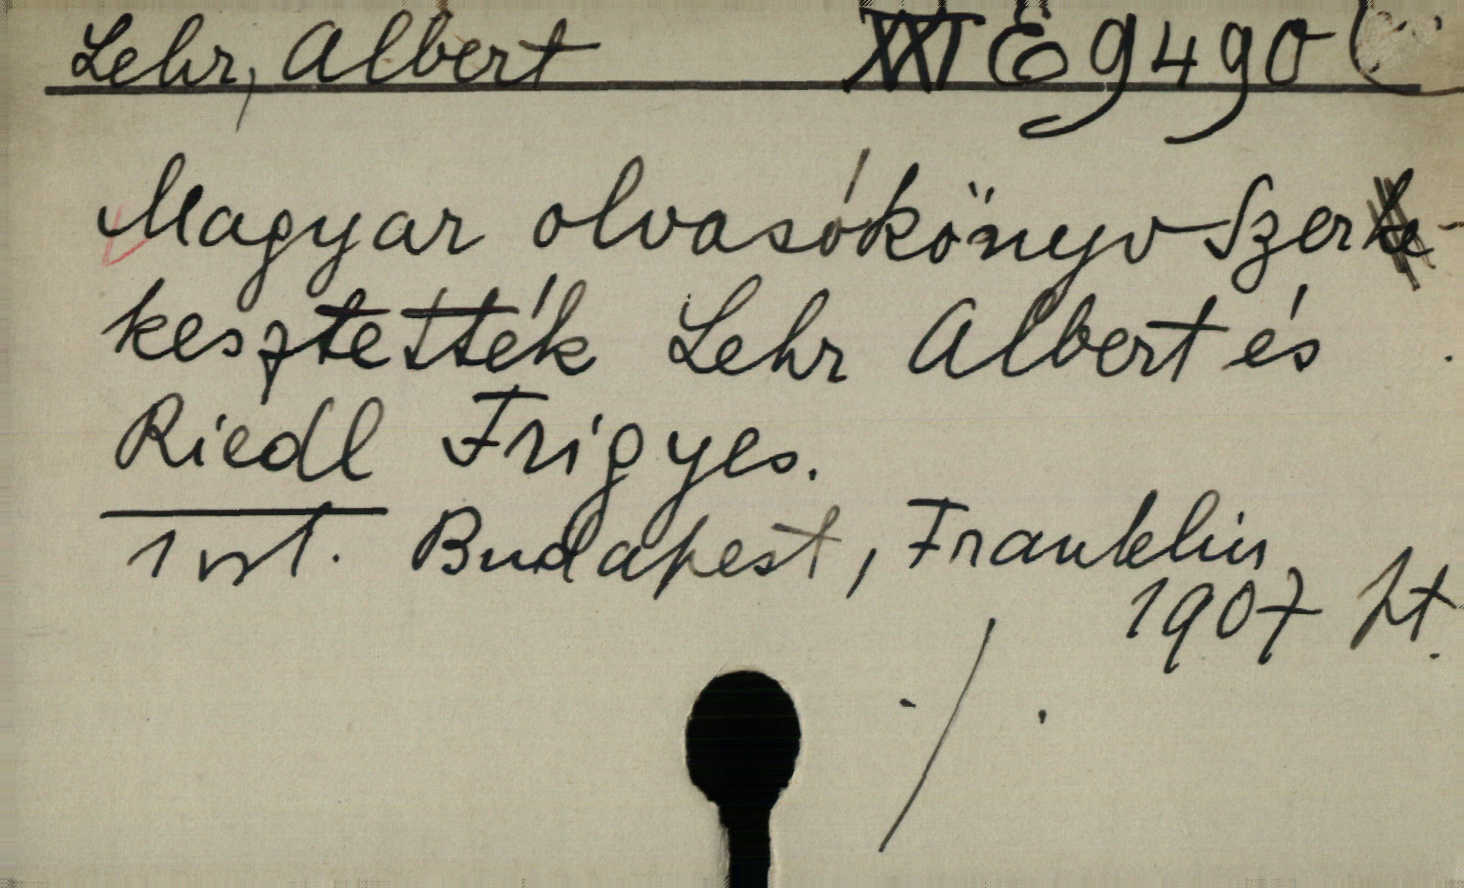 Lehr, Albert XXI E 9490
Magyar olvasókönyv Szer-
kesztették Lehr Albert és
Riedl Frigyes.
1 vol. Budapest, Franklin
1907
./.